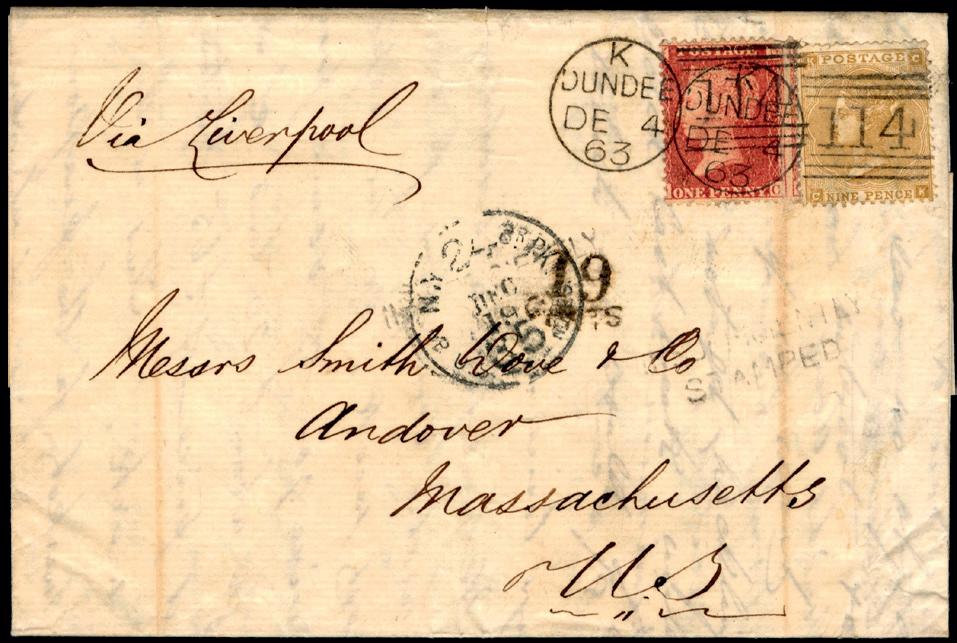 K
DUNDEE
DE 4
63
POSTAGE
114
K
DUNDEE
DE 4
63
ONE PENNY C
K POSTAGE C
114
C NINE PENCE K
Via Liverpool
N.Y.
BR. PKT
DEC
19
CENTS
STAMPED
Messrs Smith Dove & Co
Andover
Massachusetts
U.S